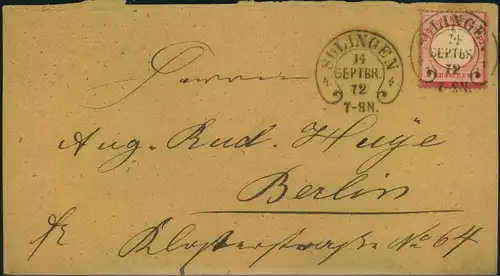 SOLINGEN
14
SEPTBR.
72
7-8N.
SOLINGEN
14
SEPTBR
72
7-8N.
Herren
Aug. Rud. Huye
Berlin
fr Klosterstrasse No 64